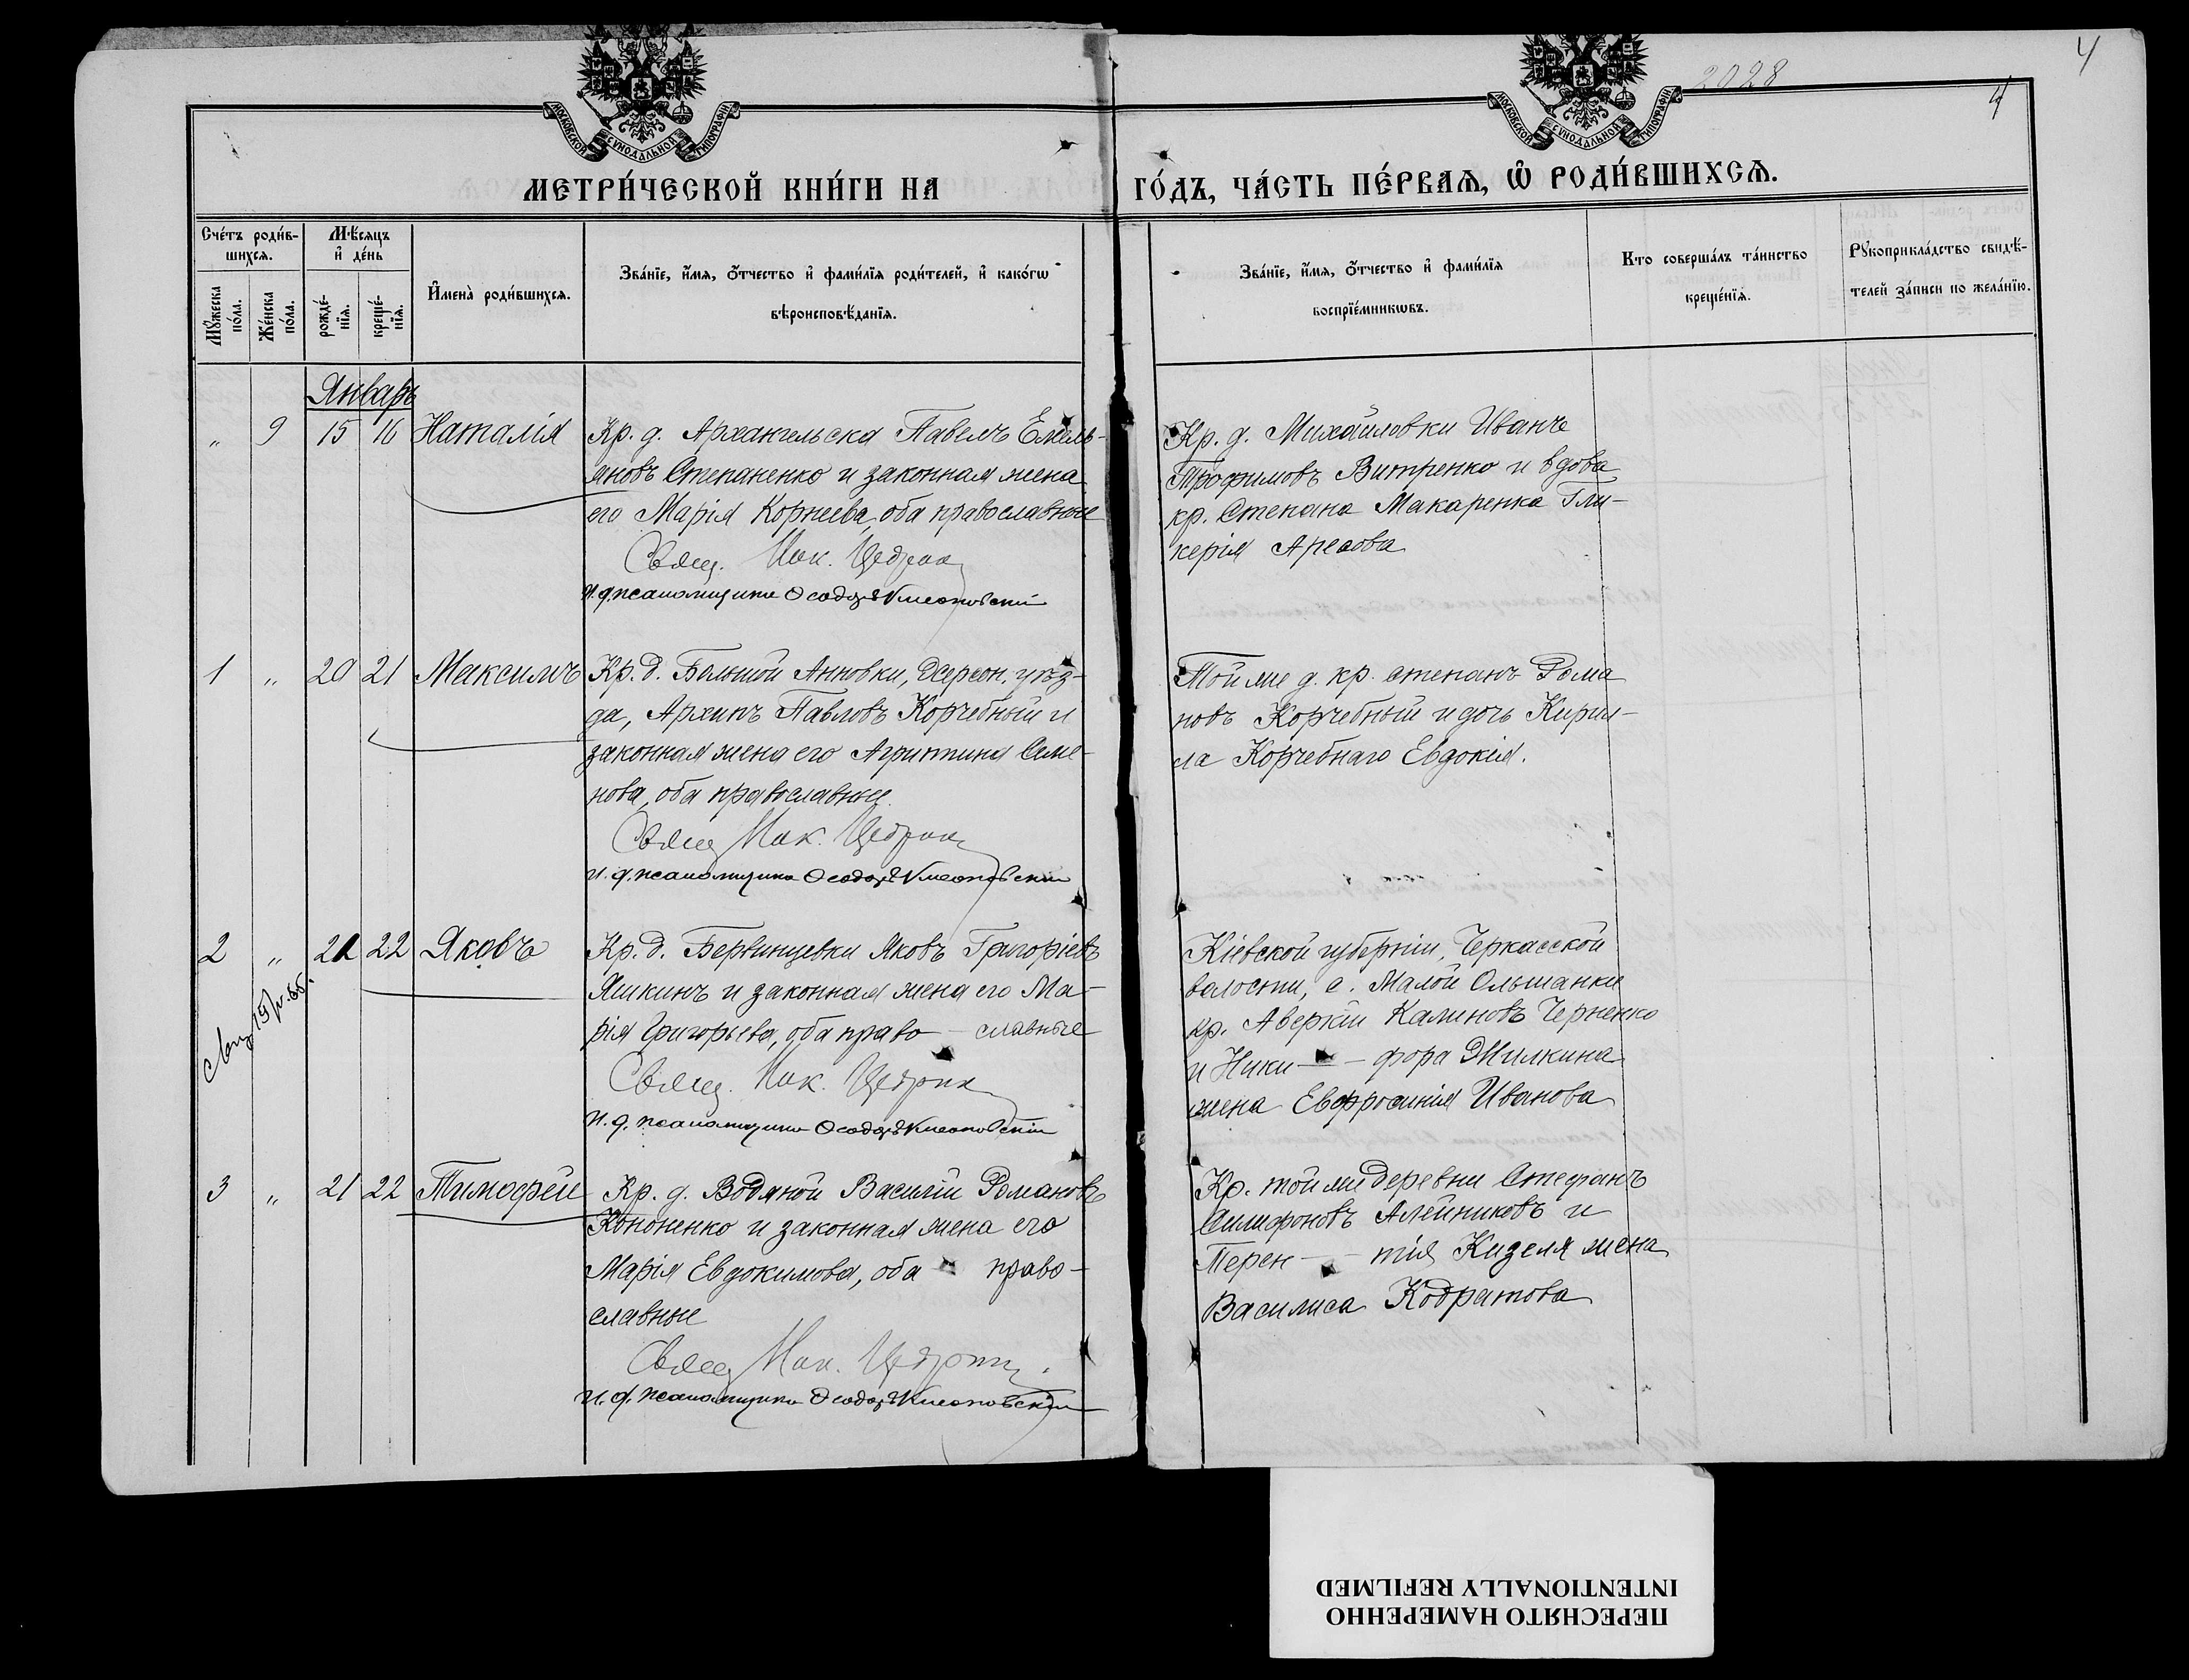 4
2028
4
МОСКОВСКОЙ СУНОДАЛЬНОЙ ТИПОГРАФІИ
МОСКОВСКОЙ СУНОДАЛЬНОЙ ТИПОГРАФІИ
МЕТРИ́ЧЕСКОЙ КНИ́ГИ НА ГО́ДЪ, ЧА́СТЬ ПЕ́РВАѦ, Ѽ РОДИ́ВШИХСѦ.
Сче́тъ роди́в-
шихсѧ.
Мꙋ́жеска по́ла.
Же́нска по́ла.
Мѣ́сяцъ
и҆ де́нь
рожде́-
нїѧ.
креще́-
нїѧ.
И҆мена̀ роди́вшихсѧ.
Зва́нїе, и҆́мѧ, ѻ҆́тчество и҆ фами́лїѧ роди́телей, и҆ како́гѡ
вѣроисповѣ́данїѧ.
Зва́нїе, и҆́мѧ, ѻ҆́тчество и҆ фами́лїѧ
воспрїе́мникѡвъ.
Кто соверша́лъ та́инство
креще́нїѧ.
Рꙋкоприкла́дство свидѣ́-
телей за́писи по жела́нїю.
Январь
„ 9 15 16 Наталія
Кр. д. Архангельска Павелъ Емель-
яновъ Степаненко и законная жена
его Марія Корнеева, оба православные
Свящ. Мак. Цедрик
и. д. псаломщика Ѳеодоръ Клеоповскій
Кр. д. Михайловки Иванъ
Трофимовъ Витренко и вдова
кр. Степана Макаренка Гли-
керія
1 „ 20 21 Максимъ
Кр. д. Большой Анновки, Херсон. уѣз-
да, Архипъ Павловъ Корчебный и
законная жена его Агриппина Семе-
нова, оба православные.
Свящ Мак. Цедрик
и. д. псаломщика Ѳеодоръ Клеоповскій
Той же д. кр. Степанъ Рома
новъ Корчебный и дочь Кирил-
ла Корчебнаго Евдокія.
2 „ 21 22 Яковъ
Кр. д. Яковъ Григоріевъ
Яшкинъ и законная жена его Ма-
рія Григорьева, оба право- славные
Свящ. Мак. Цедрик
и. д. псаломщика Ѳеодоръ Клеоповскій
Кіевской губерніи, Черкасской
волости, с. Малой Ольшанки
кр. Аверкій Калиновъ Черненко
и Ники- - фора
жена Евфросинія Иванова
3 „ 21 22 Тимофей
Кр. д. Водяной Василій Романовъ
Кононенко и законная жена его
Марія Евдокимова, оба право-
славные
Свящ Мак. Цедрик
и. д. псаломщика Ѳеодоръ Клеоповскій
Кр. той же деревни Стефанъ
Олейниковъ и
Терен- - тія Кизеля жена
Василиса Кодратова
ПЕРЕСНЯТО НАМЕРЕННО
INTENTIONALLY REFILMED